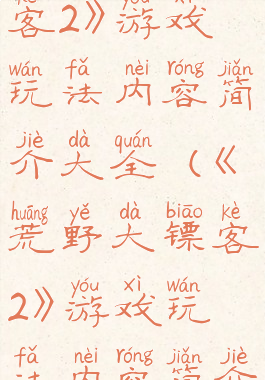 kè yóu xì
客2》游戏
wán fǎ nèi róng jiǎn
玩法内容简
jiè dà quán
介大全（《
huāng yě dà biāo kè
荒野大镖客
yóu xì wán
2》游戏玩
fǎ nèi róng jiǎn jiè
法内容简介